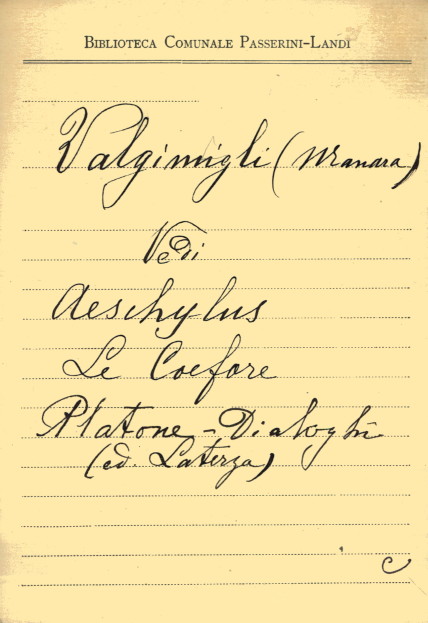 BIBLIOTECA COMUNALE PASSERINI-LANDI
Valgimigli (Manara)
Vedi
Aeschylus
Le Coefore
Platone - Dialoghi
(ed. Laterza)
C